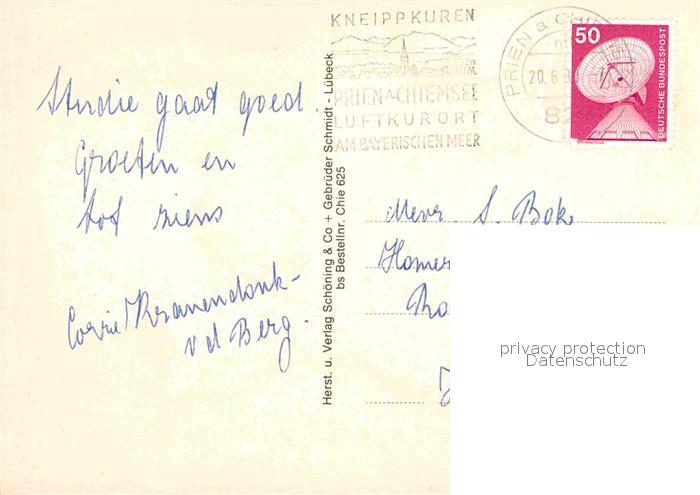 Studie gaat goed.
Groeten en
tot ziens
Corrie Kranendonk-
v d Berg.
Herst. u. Verlag Schöning & Co + Gebrüder Schmidt - Lübeck
bs Bestellnr. Chie 625
KNEIPPKUREN
PRIEN A CHIEMSEE
LUFTKURORT
AM BAYERISCHEN MEER
PRIEN a CHIE
20.6.8
82
50
DEUTSCHE BUNDESPOST
Mevr. S. Bok
Homer
privacy protection
Datenschutz